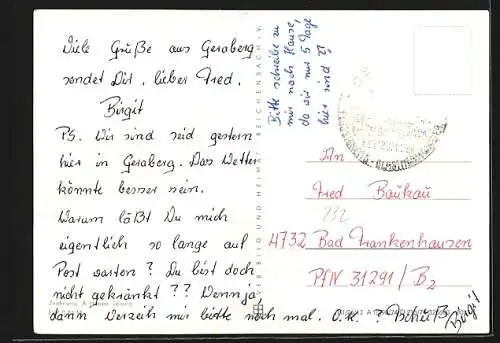 Viele Grüße aus Geraberg
sendet Dir, lieber Fred,
Birgit
PS. Wir sind seid gestern
hier in Geraberg. Das Wetter
könnte besser sein.
Warum läßt Du mich
eigentlich so lange auf
Post warten? Du bist doch
nicht gekränkt?? Wenn ja,
dann verzeih mir bitte noch mal. O.K.? Tschüß
Birgit
Bitte schreibe zu
mir nach Hause,
da wir nur 5 Tage
hier sind
BILD UND HEIMAT REICHENBACH i. V.
An
Fred Baukau
232
4732 Bad Frankenhausen
PfN 31291/B2